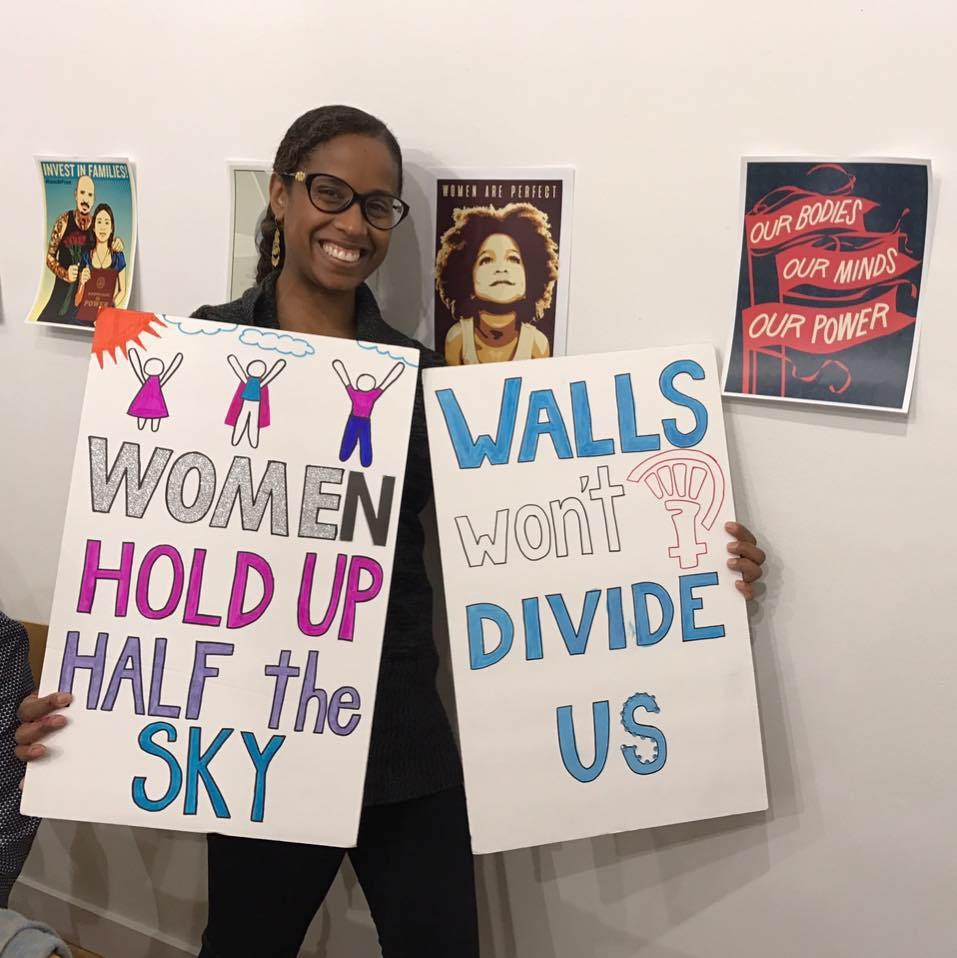 INVEST IN FAMILIES!
POWER
WOMEN ARE PERFECT
OUR BODIES
OUR MINDS
OUR POWER
WOMEN
HOLD UP
HALF the
SKY
WALLS
won't
DIVIDE
US